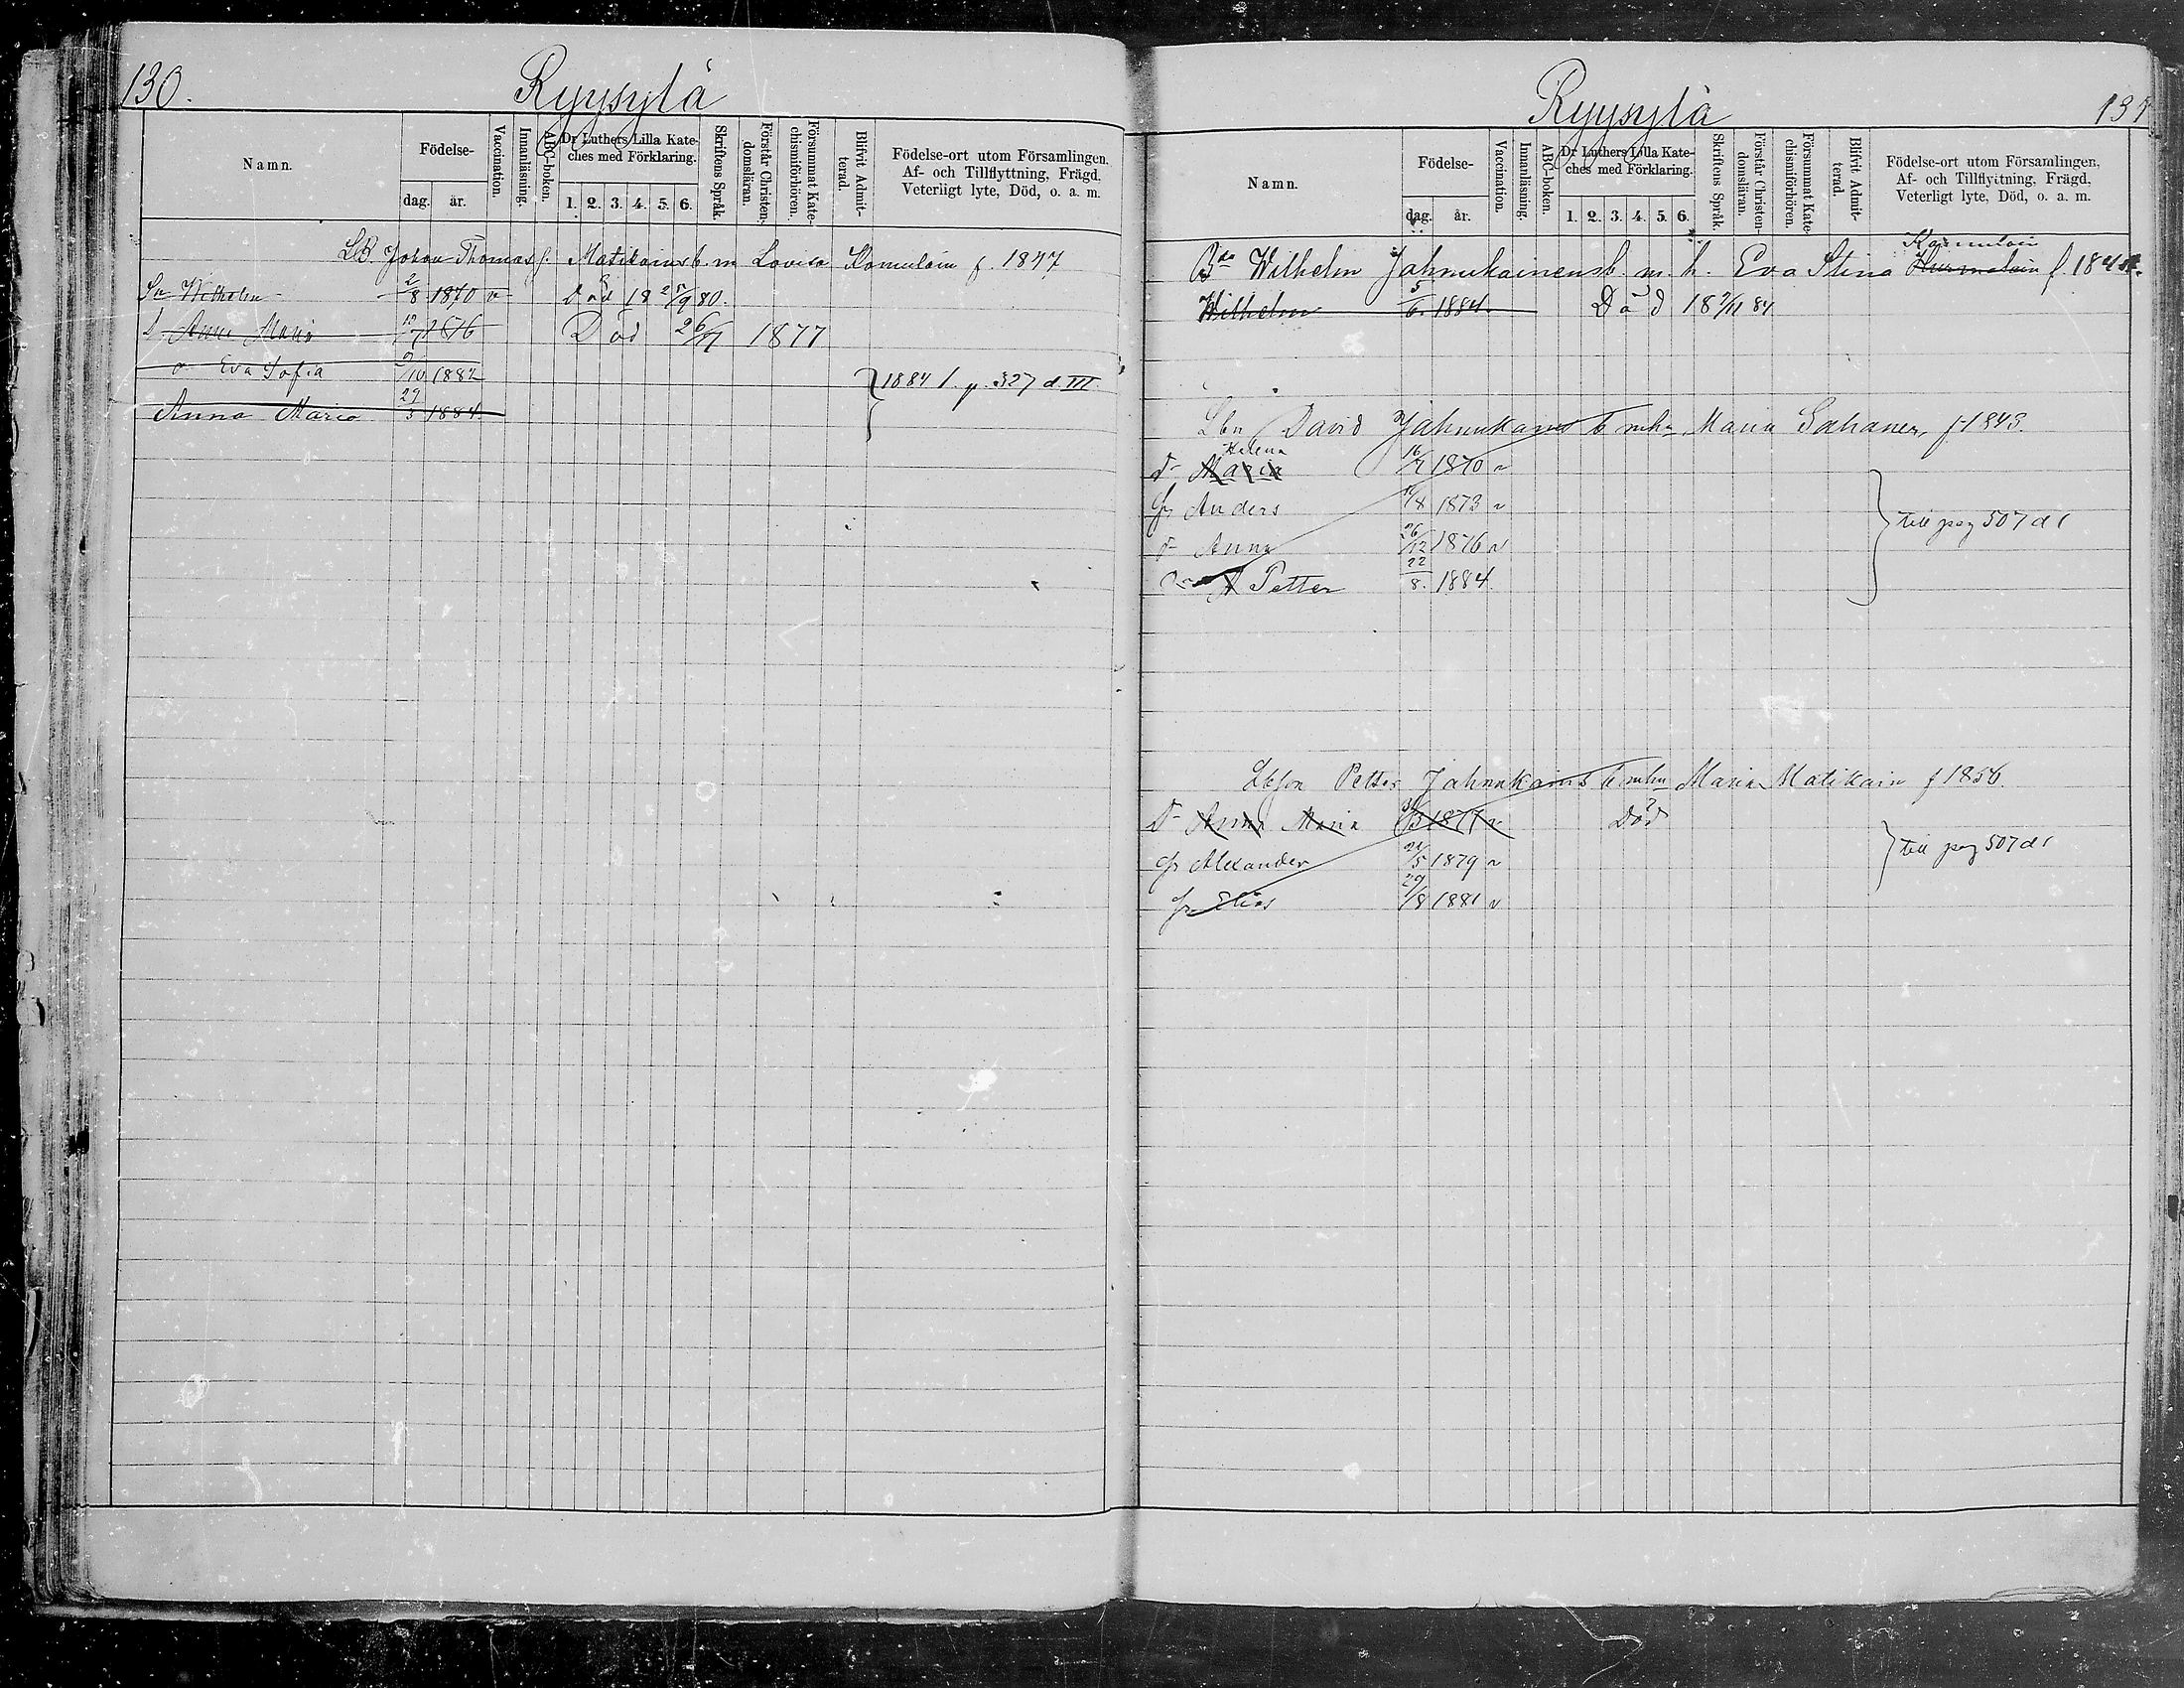 130.
Ryysylä
Namn.
Födelse-
dag.
år.
Vaccination.
Innanläsning.
ABC-boken.
Dr Luthers Lilla Kate-
ches med Förklaring.
1. 2. 3. 4. 5. 6.
Skriftens Språk.
Förstår Christen-
domsläran.
Försummat Kate-
chismiförhören.
Blifvit Admit-
terad.
Födelse-ort utom Församlingen.
Af- och Tillflyttning, Frägd.
Veterligt lyte, Död, o. a. m.
Johan Thomas Matikains m Lovisa Komulain f. 1847
Sn Wilhelm 2/8 1870 Död
d. Anna Maria 1876 Död 1877
Eva Sofia 1882
1884 f. p. 327 d. III
Anna Maria 29/3 1884.
Ryysylä
131
Namn.
Födelse-
dag.
år.
Vaccination.
Innanläsning.
ABC-boken.
Dr Luthers Lilla Kate-
ches med Förklaring.
1. 2. 3. 4. 5. 6.
Skriftens Språk.
Förstår Christen-
domsläran.
Försummat Kate-
chismiförhören.
Blifvit Admit-
terad.
Födelse-ort utom Församlingen,
Af- och Tillflyttning, Frägd,
Veterligt lyte, Död, o. a. m.
Komulain
Wilhelm Jahnukainens b. m. h. Eva Stina
Wilhelm 5/6. 1884. Död
Lbn David Jahnukains b mhu Maria Sahanen, f 1843.
Helena
d- Maria 16/7 1870
Anders 1873
d- Anna 26/12 1876
Petter 22/8. 1884.
till pag 507 d 1
Petter Jahnukains b mhu Maria Matikain f 1856.
D- Anna Maria Död
Alexander 1879
Elias 29/8 1881
till pag 507 d 1